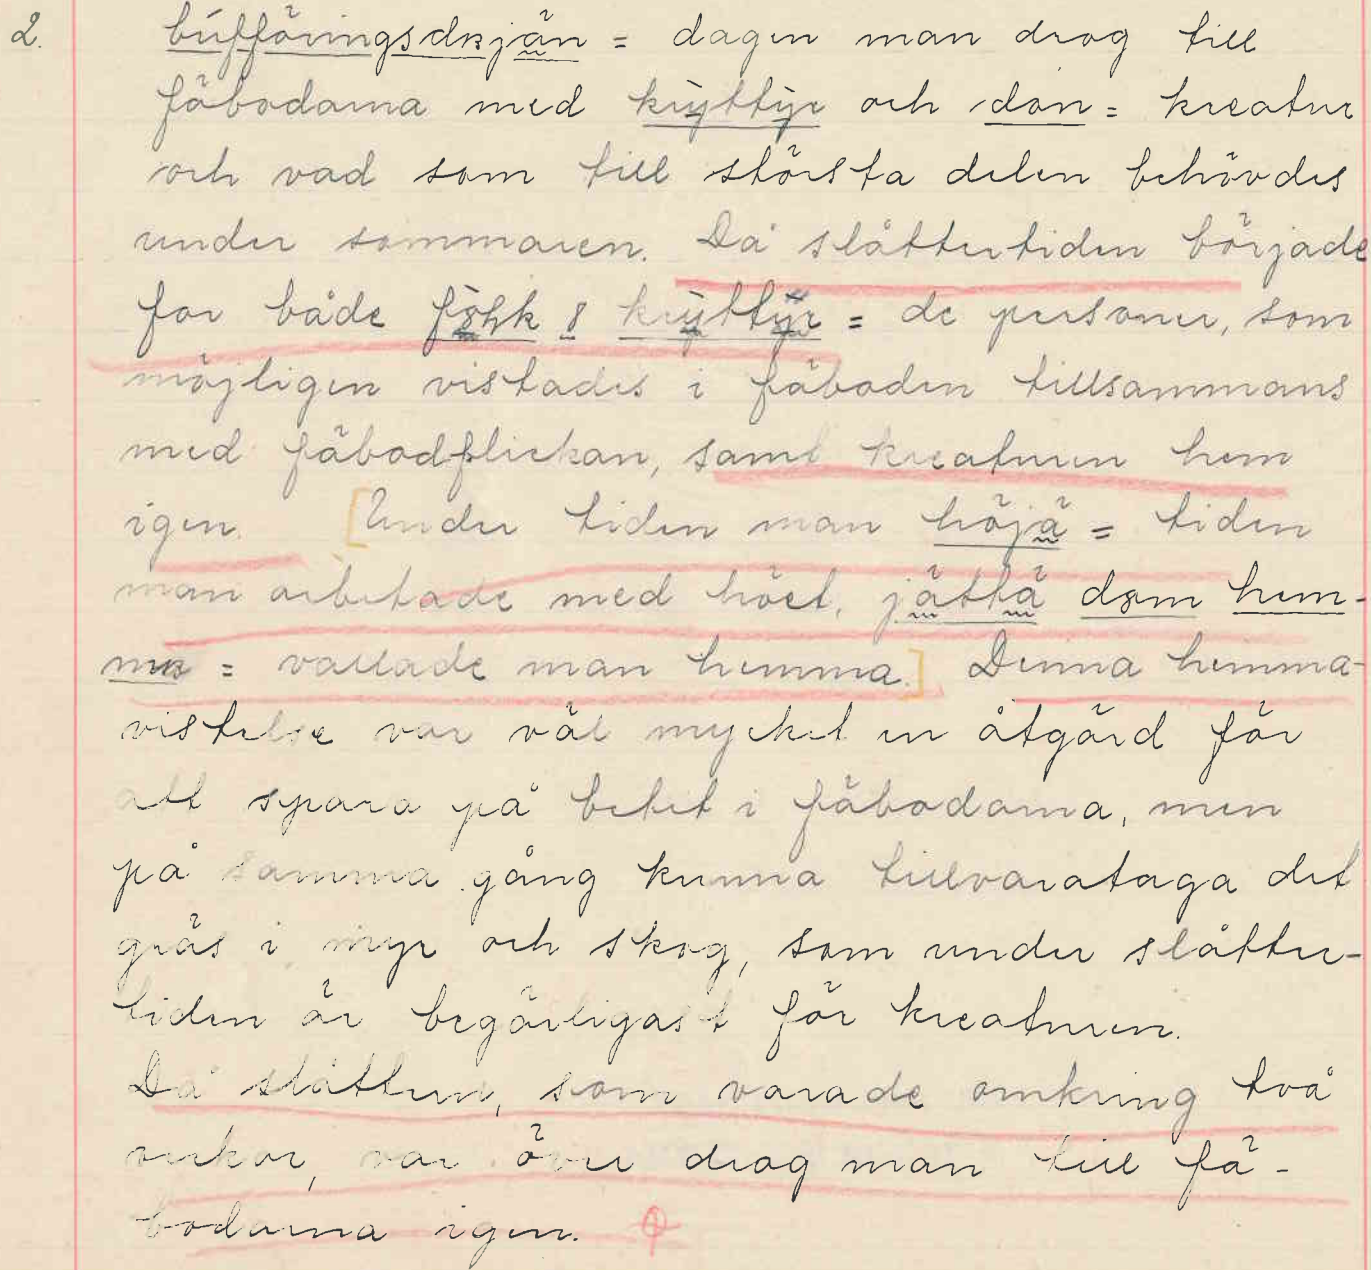 2. bufföringsdagjän = dagen man drog till
fäbodarna med kryttyr och don = kreatur
och vad som till största delen behövdes
under sommaren. Då slåttertiden började
for både fökk o kryttyr = de personer, som
möjligen vistades i fäboden tillsammans
med fäbodflickan, samt kreaturen hem
igen. [Under tiden man höjä = tiden
man arbetade med höet, jättä dom hem-
ma = vallade man hemma.] Denna hemma-
vistelse var väl mycket en åtgärd för
att spara på betet i fäbodarna, men
på samma gång kunna tillvarataga det
gräs i myr och skog, som under slåtter-
tiden är begärligast för kreaturen.
Då slåttern, som varade omkring två
veckor, var över drog man till fä-
bodarna igen.